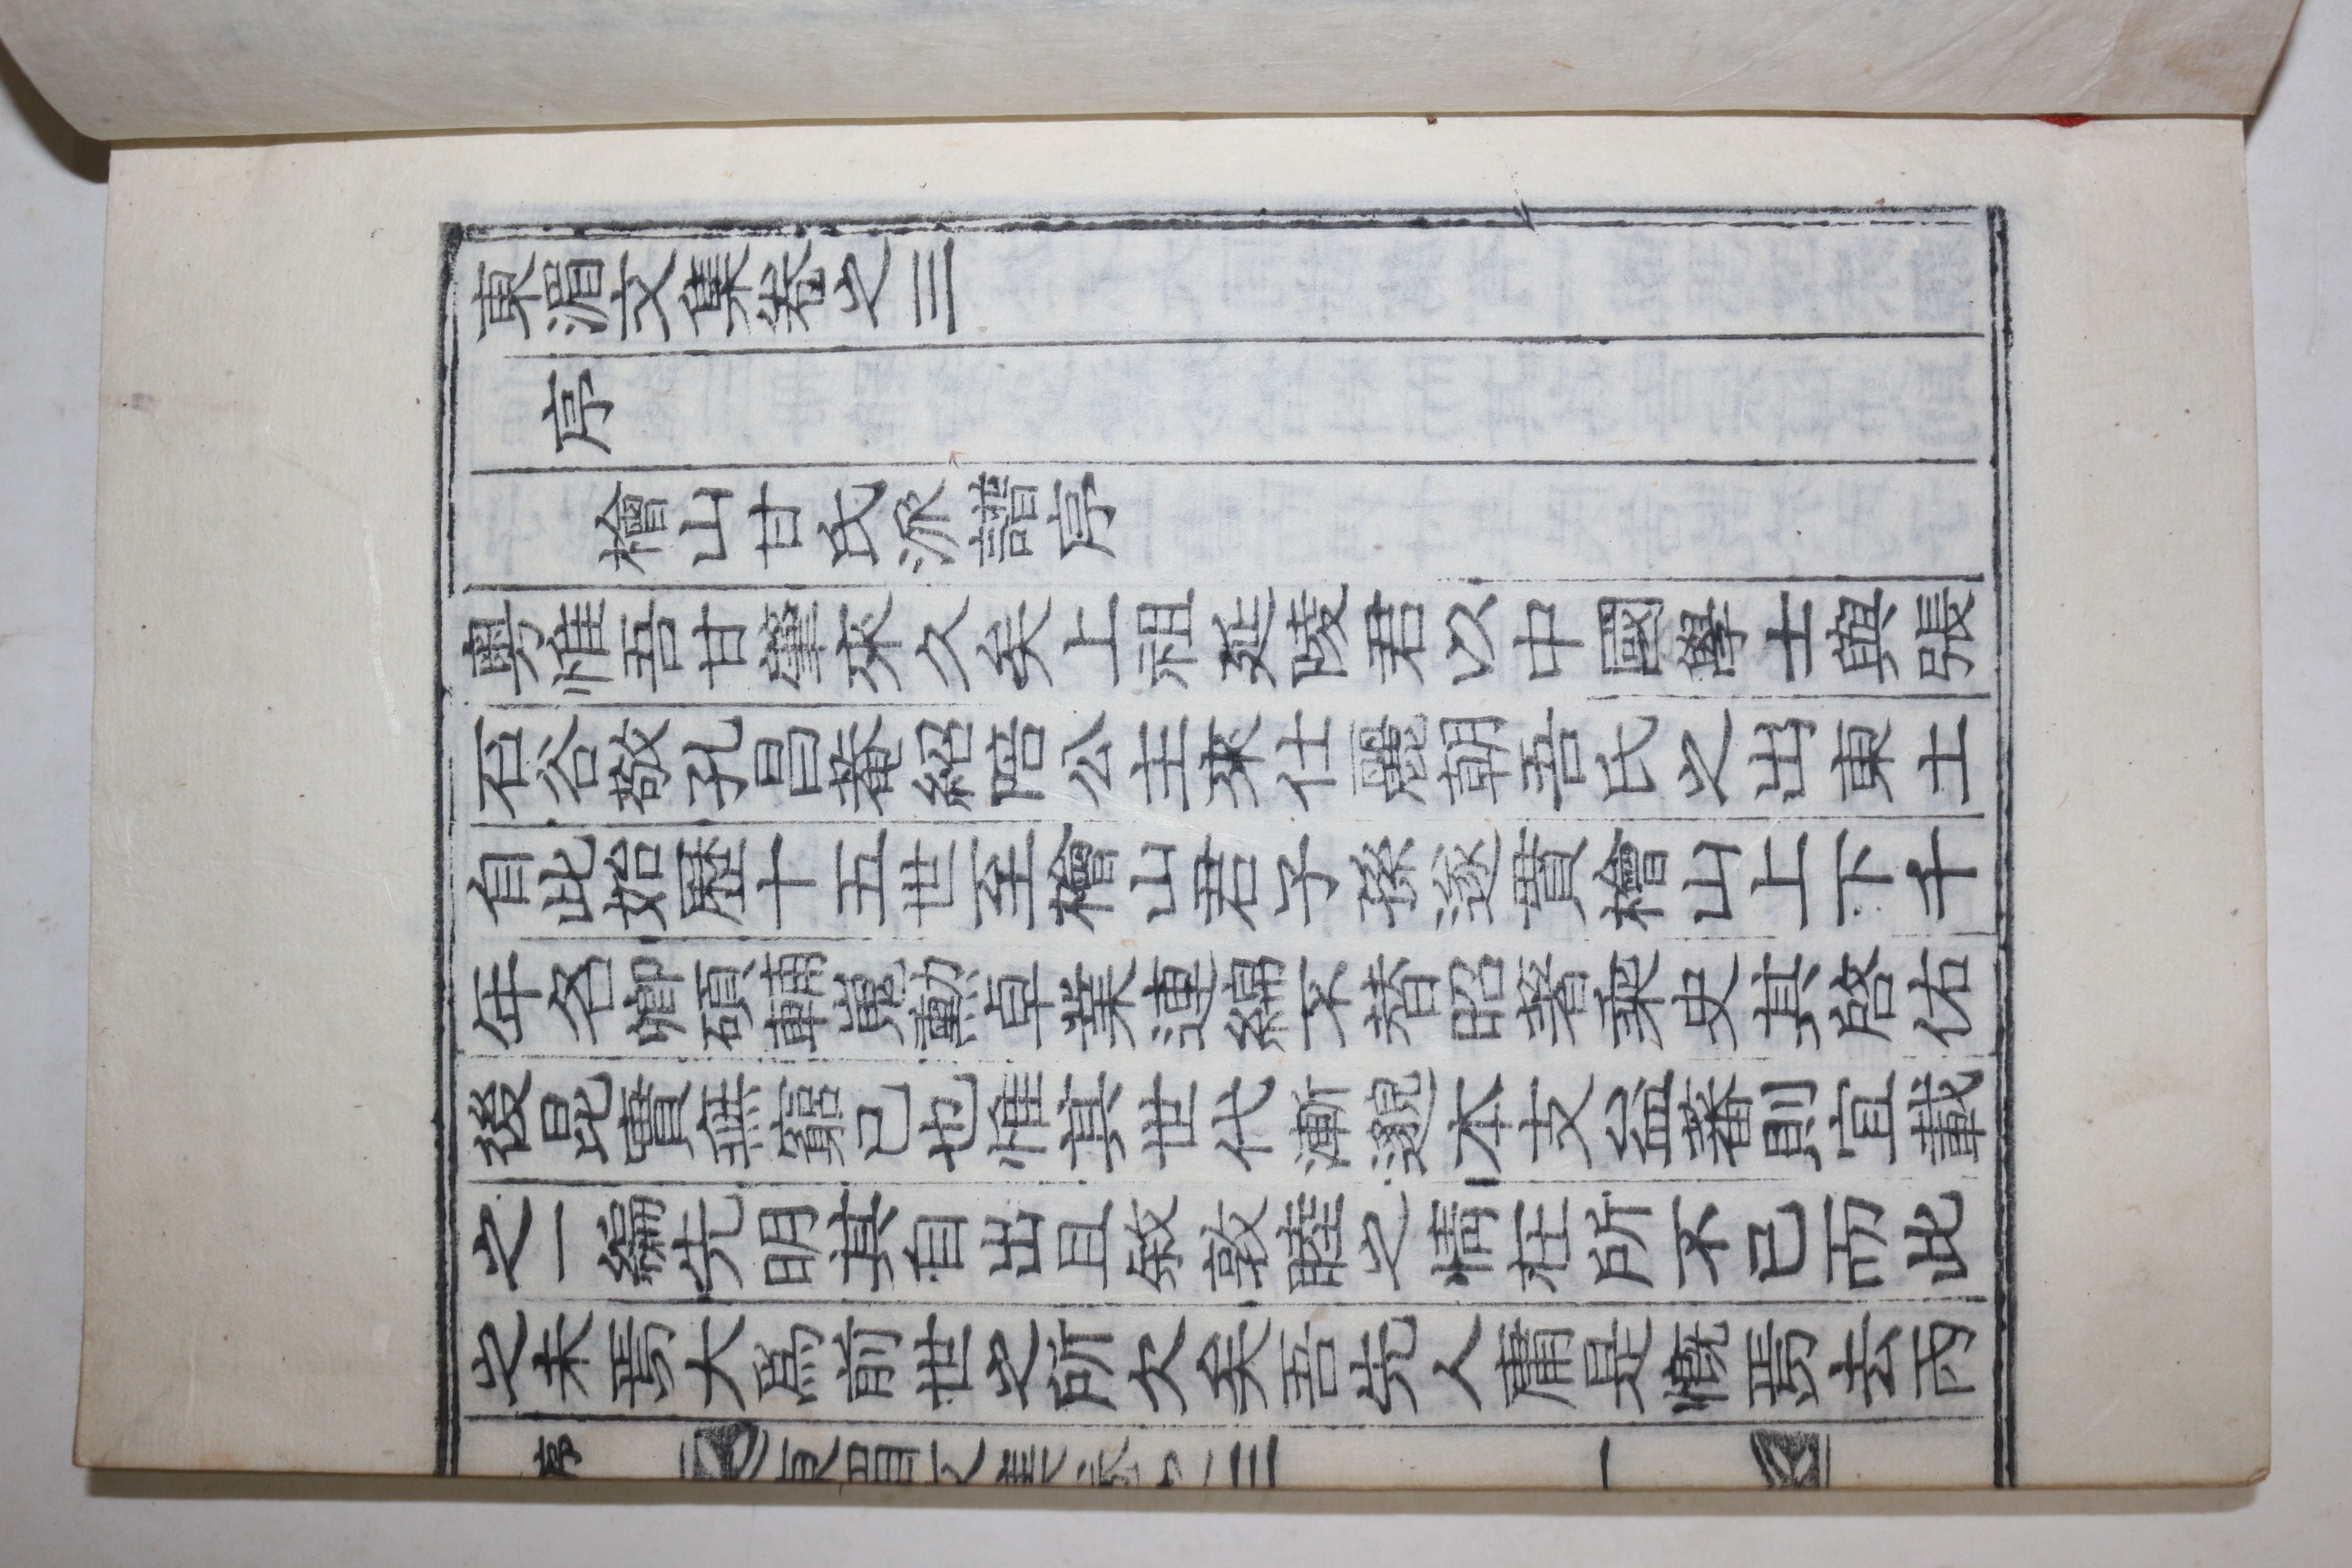 東湄文集卷之三
序
檜山甘氏派譜序
粤惟吾甘肇來久矣上祖延陵君以中國學士與張
石谷敬孔昌菴紹陪公主來仕麗朝吾氏之出東土
自此始歷十五世至檜山君子孫遂貫檜山上下千
年名卿碩輔嵬勳卓業連綿不替昭著乘史其啓佑
後昆實無窮已也惟其世代漸邈本支益蕃則宜載
之一編先明其自出且敘敦睦之情在所不已而此
之未焉大爲前世之所欠矣吾先人庸是慨焉去丙
序 東湄文集卷之三 一